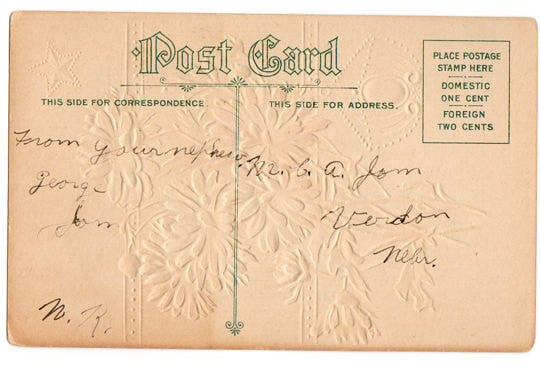 Post Card
PLACE POSTAGE
STAMP HERE
DOMESTIC
ONE CENT
FOREIGN
TWO CENTS
THIS SIDE FOR CORRESPONDENCE.
THIS SIDE FOR ADDRESS.
From your nephew
George
N. K.
A. Jom
Verdon
Nebr.